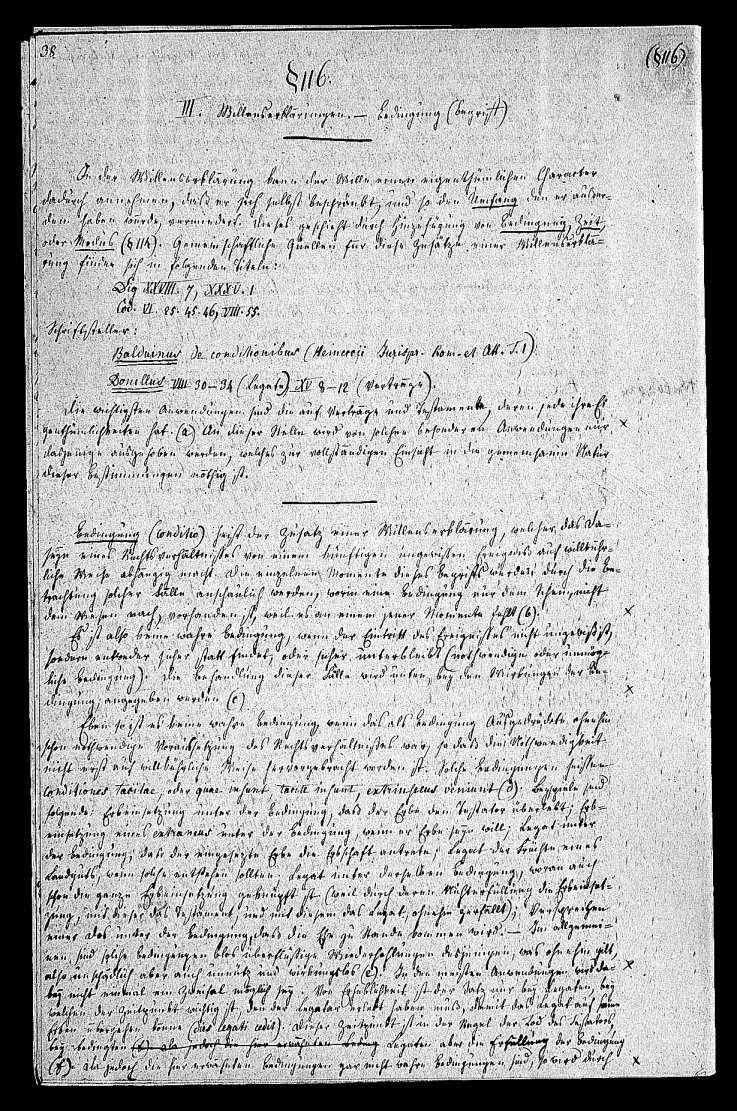 38
(§116)
§116.
III. Willenserklärungen. — Bedingung (Begriff)
In der Willenserklärung kann der Wille einen eigenthümlichen Character
dadurch annehmen, daß er sich selbst beschränkt, und so den Umfang den er außer-
dem haben würde, vermindert. Dieses geschieht durch Hinzufügung von Bedingung, Zeit,
oder Modus (§114). Gemeinschaftliche Quellen für diese Zusätze einer Willenserklä-
rung finden sich in folgenden Titeln:
Dig XXVIII. 7, XXXV. 1
Cod. VI. 25. 45. 46, VIII. 55.
Schriftsteller:
Balduinus de conditionibus (Heineccii Jurispr. Rom. et Att. T. 1)
Donellus VIII 30–34 (Legate) XV 8–12 (Verträge).
Die wichtigsten Anwendungen sind die auf Verträge und Testamente, deren jede ihre Ei-
genthümlichkeiten hat. (a) An dieser Stelle wird von solchen besonderen Anwendungen nur
dasjenige ausgehoben werden, welches zur vollständigen Einsicht in die gemeinsame Natur
dieser Bestimmungen nöthig ist.
Bedingung (conditio) heißt der Zusatz einer Willenserklärung, welcher das Da-
seyn eines Rechtsverhältnisses von einem künftigen ungewissen Ereigniß auf willkühr-
liche Weise abhängig macht. Die einzelnen Momente dieses Begriffs werden durch die Be-
trachtung solcher Fälle anschaulich werden, worin eine Bedingung nur dem Schein, nicht
dem Wesen nach, vorhanden ist, weil es an einem jener Momente fehlt (b).
Es ist also keine wahre Bedingung, wenn der Eintritt des Ereignisses nicht ungewiß ist,
sondern entweder sicher statt findet, oder sicher unterbleibt (nothwendige oder unmög-
liche Bedingung). Die Behandlung dieser Fälle wird unten, bey den Wirkungen der Be-
dingung, angegeben werden (c)
Eben so ist es keine wahre Bedingung, wenn das als Bedingung Ausgedrückte ohnehin
schon nothwendige Voraussetzung des Rechtsverhältnisses war, so daß die Nothwendigkeit
nicht erst auf willkührliche Weise hervorgebracht worden ist. Solche Bedingungen heißen
conditiones tacitae, oder quae insunt, tacite insunt, extrinsecus veniunt (d). Beyspiele sind
folgende: Erbeinsetzung unter der Bedingung, daß der Erbe den Testator überlebt; Erb-
einsetzung eines extraneus unter der Bedingung, wenn er Erbe seyn will; Legat unter
der Bedingung, daß der eingesetzte Erbe die Erbschaft antrete; Legat der Früchte eines
Landguts, wenn solche entstehen sollten; Legat unter derselben Bedingung, woran auch
schon die ganze Erbeinsetzung geknüpft ist (weil durch deren Nichterfüllung die Erbeinset-
zung, mit dieser das Testament, und mit diesem das Legat, ohnehin zerfällt); Versprechen
einer Dos unter der Bedingung, daß die Ehe zu Stande kommen wird. — Im allgemei-
nen sind solche Bedingungen blos überflüssige Wiederholungen desjenigen, was ohnehin gilt,
also unschädlich aber auch unnütz und wirkungslos (e). In den meisten Anwendungen wird da-
bey nicht einmal ein Zweifel möglich seyn. Von Erheblichkeit ist der Satz nur bey Legaten, bey
welchen der Zeitpunkt wichtig ist, den der Legatar erlebt haben muß, damit das Legat auf seine
Erben übergehen könne (dies legati cedit). Dieser Zeitpunkt ist in der Regel der Tod des Testators,
bey bedingten Legaten aber die Erfüllung der Bedingung
(f). Da jedoch die hier erwähnten Bedingungen gar nicht wahre Bedingungen sind, so wird durch